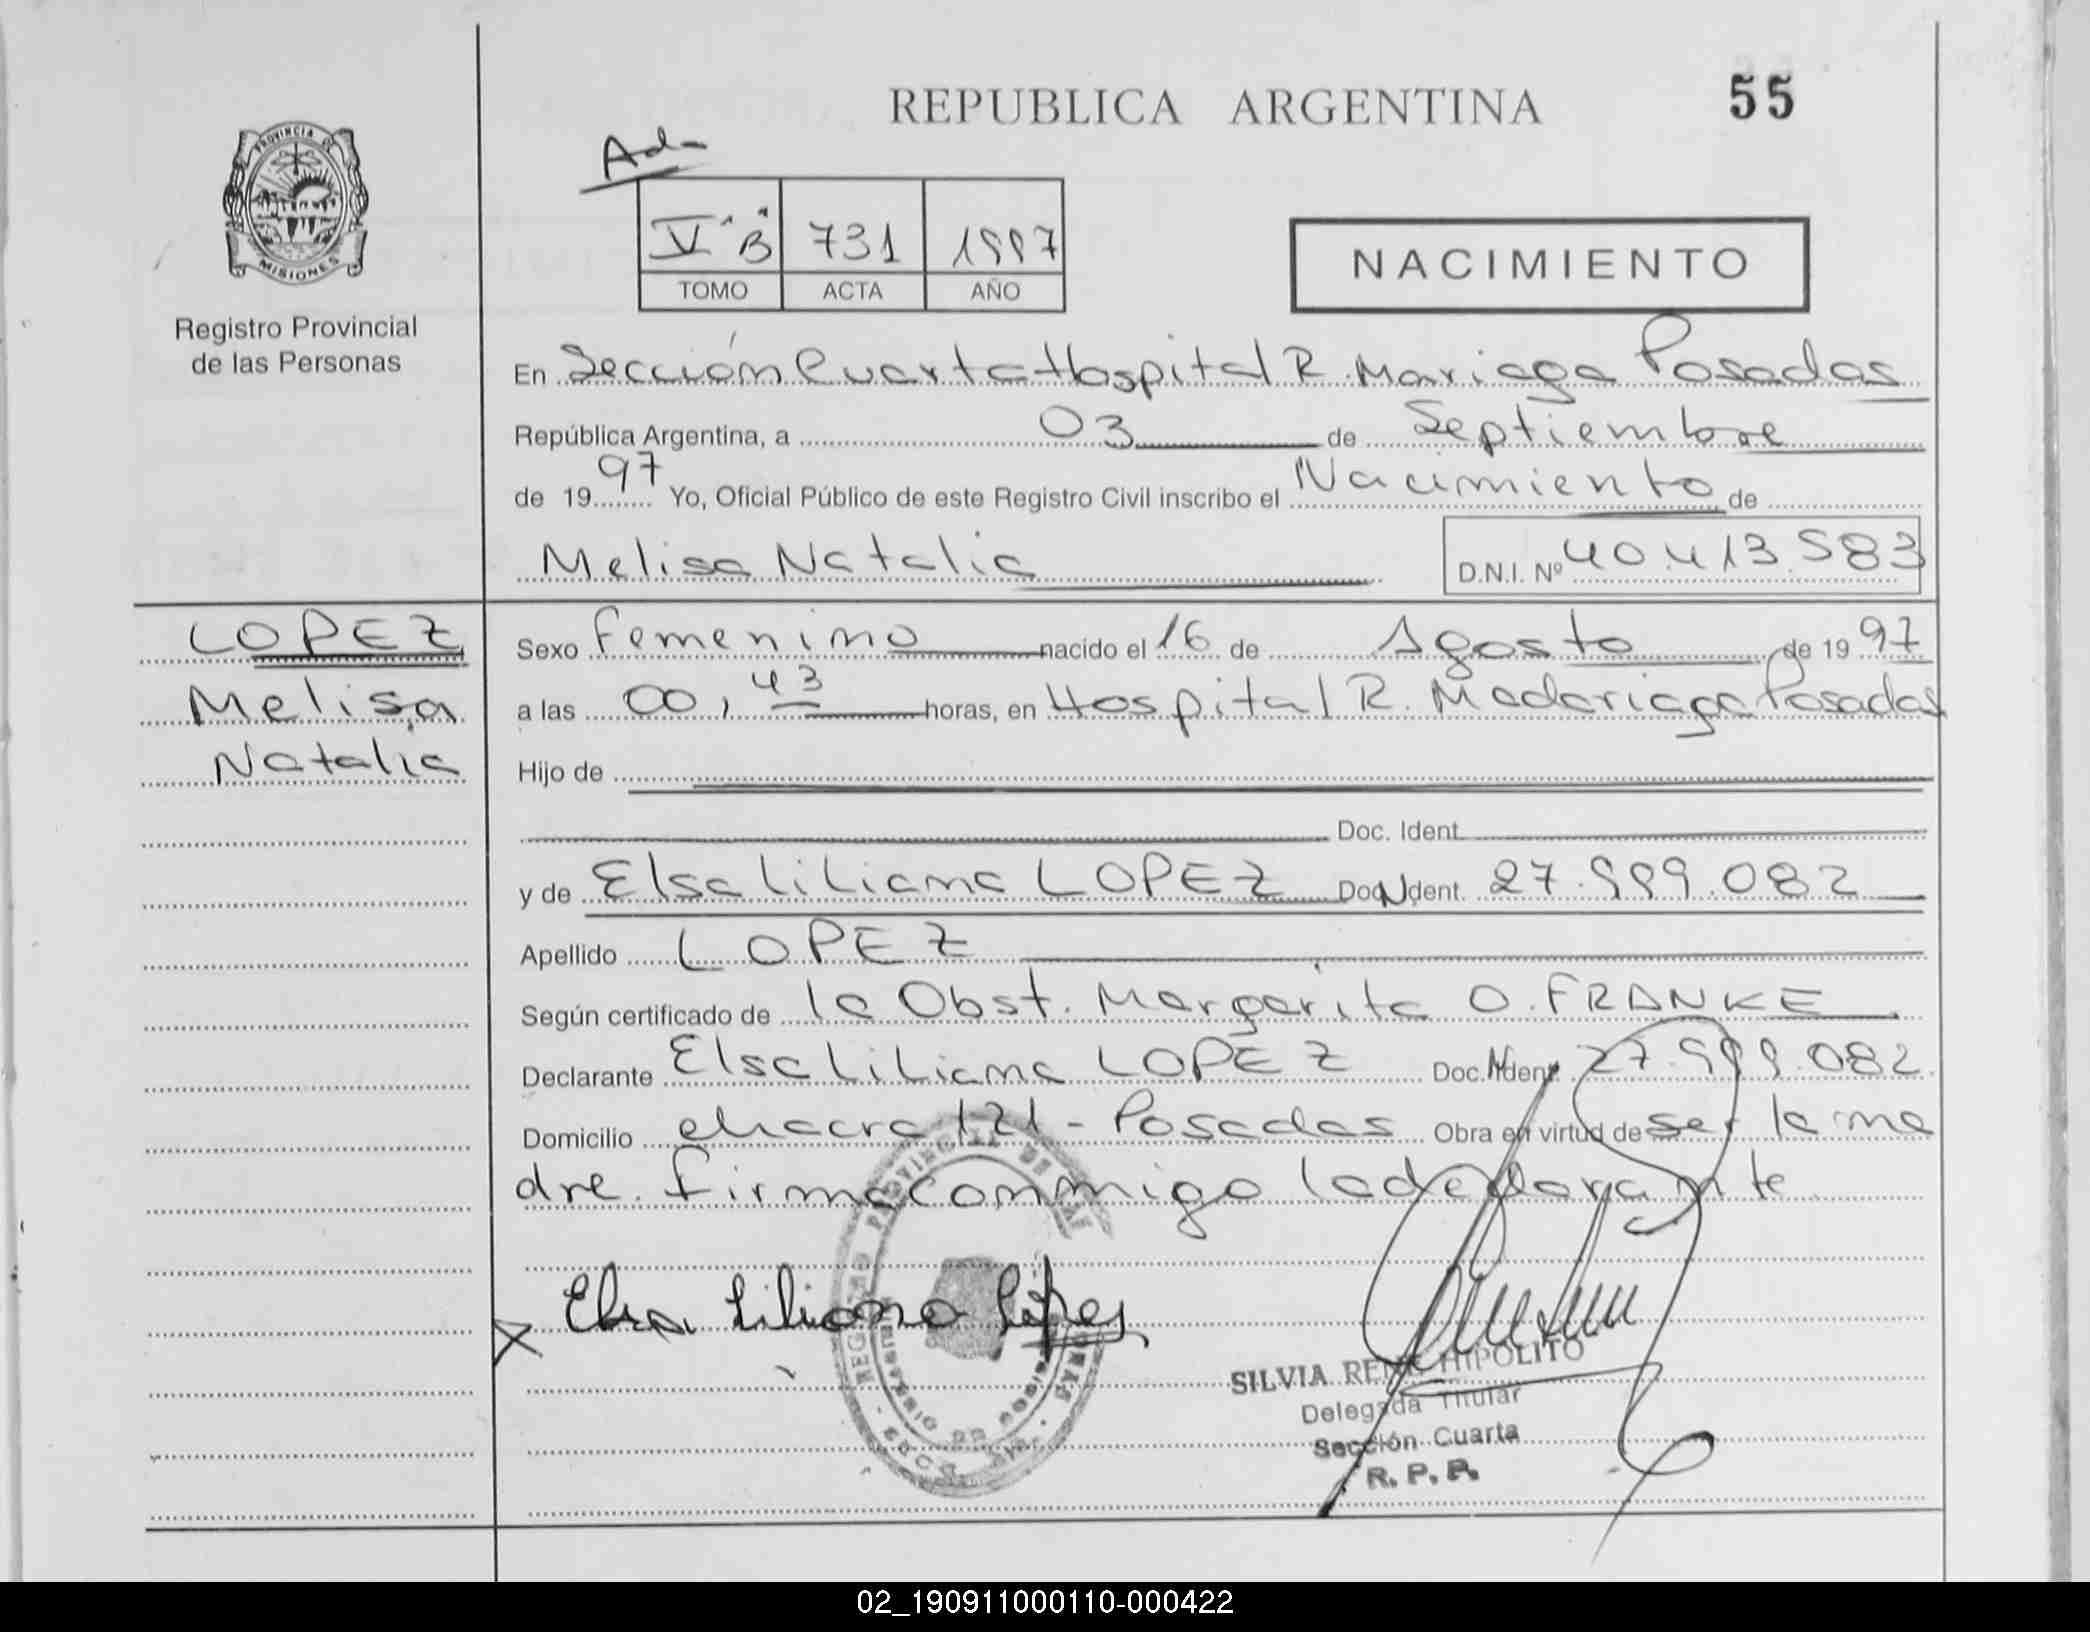 REPUBLICA ARGENTINA
55
PROVINCIA DE
MISIONES
Registro Provincial
de las Personas
Ada
V "B" 731 1997
TOMO ACTA AÑO
NACIMIENTO
En Sección Cuarta Hospital R. Mariaga Posadas
República Argentina, a 03 de Septiembre
de 1997 Yo, Oficial Público de este Registro Civil inscribo el Nacimiento de
Melisa Natalia D.N.I. Nº 40.413.583
LOPEZ
Melisa
Natalia
Sexo Femenino nacido el 16 de Agosto de 1997
a las 00,43 horas, en Hospital R. Madariaga Posadas
Hijo de
Doc. Ident.
y de Elsa Liliana LOPEZ Doc. N Ident. 27.999.082
Apellido LOPEZ
Según certificado de la Obst. Margarita O. FRANKE
Declarante Elsa Liliana LOPEZ Doc. N Ident. 27.999.082
Domicilio chacra 121 - Posadas Obra en virtud de ser la ma
dre. firma conmigo la declarante
X Elsa Liliana López
SILVIA RENE HIPOLITO
Delegada Titular
Sección Cuarta
R. P. P.
02_190911000110-000422